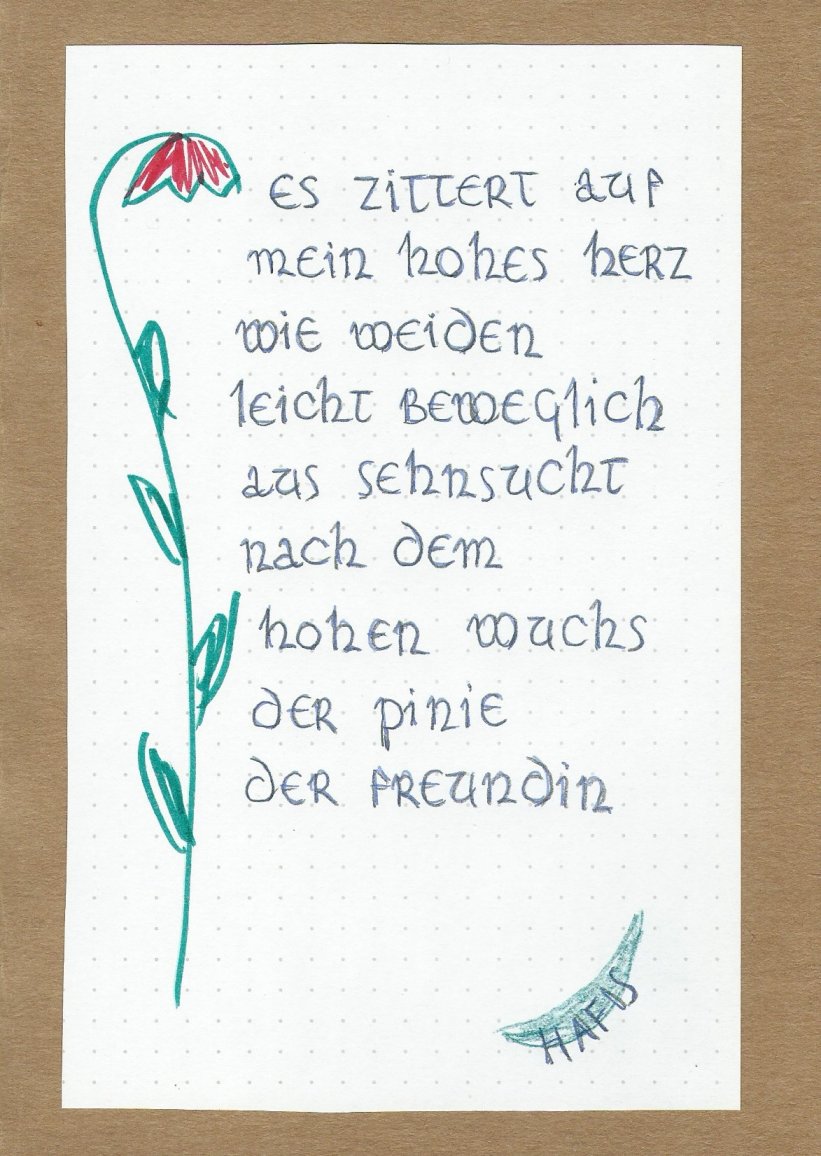 es zittert auf
mein hohes herz
wie weiden
leicht beweglich
aus sehnsucht
nach dem
hohen wuchs
der pinie
der freundin
HAFIS